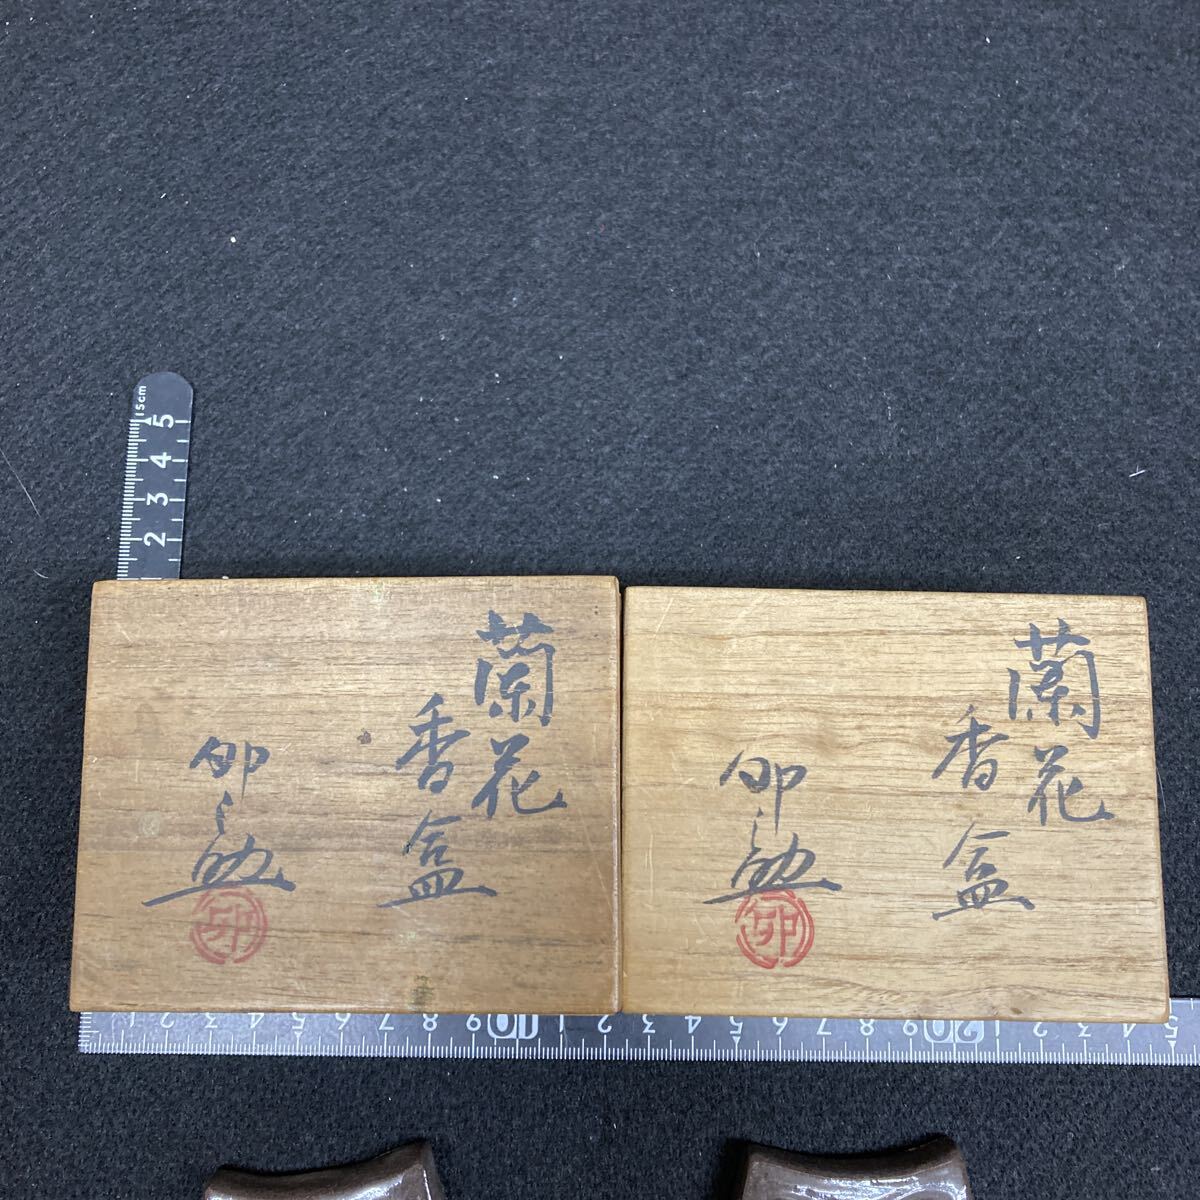 蘭花
香盒
卯之助
卯
蘭花
香盒
卯之助
卯
15cm
5
4
3
2
1 2 3 4 5 6 7 8 9 10 1 2 3 4 5 6 7 8 9 20 1 2 3 4 5